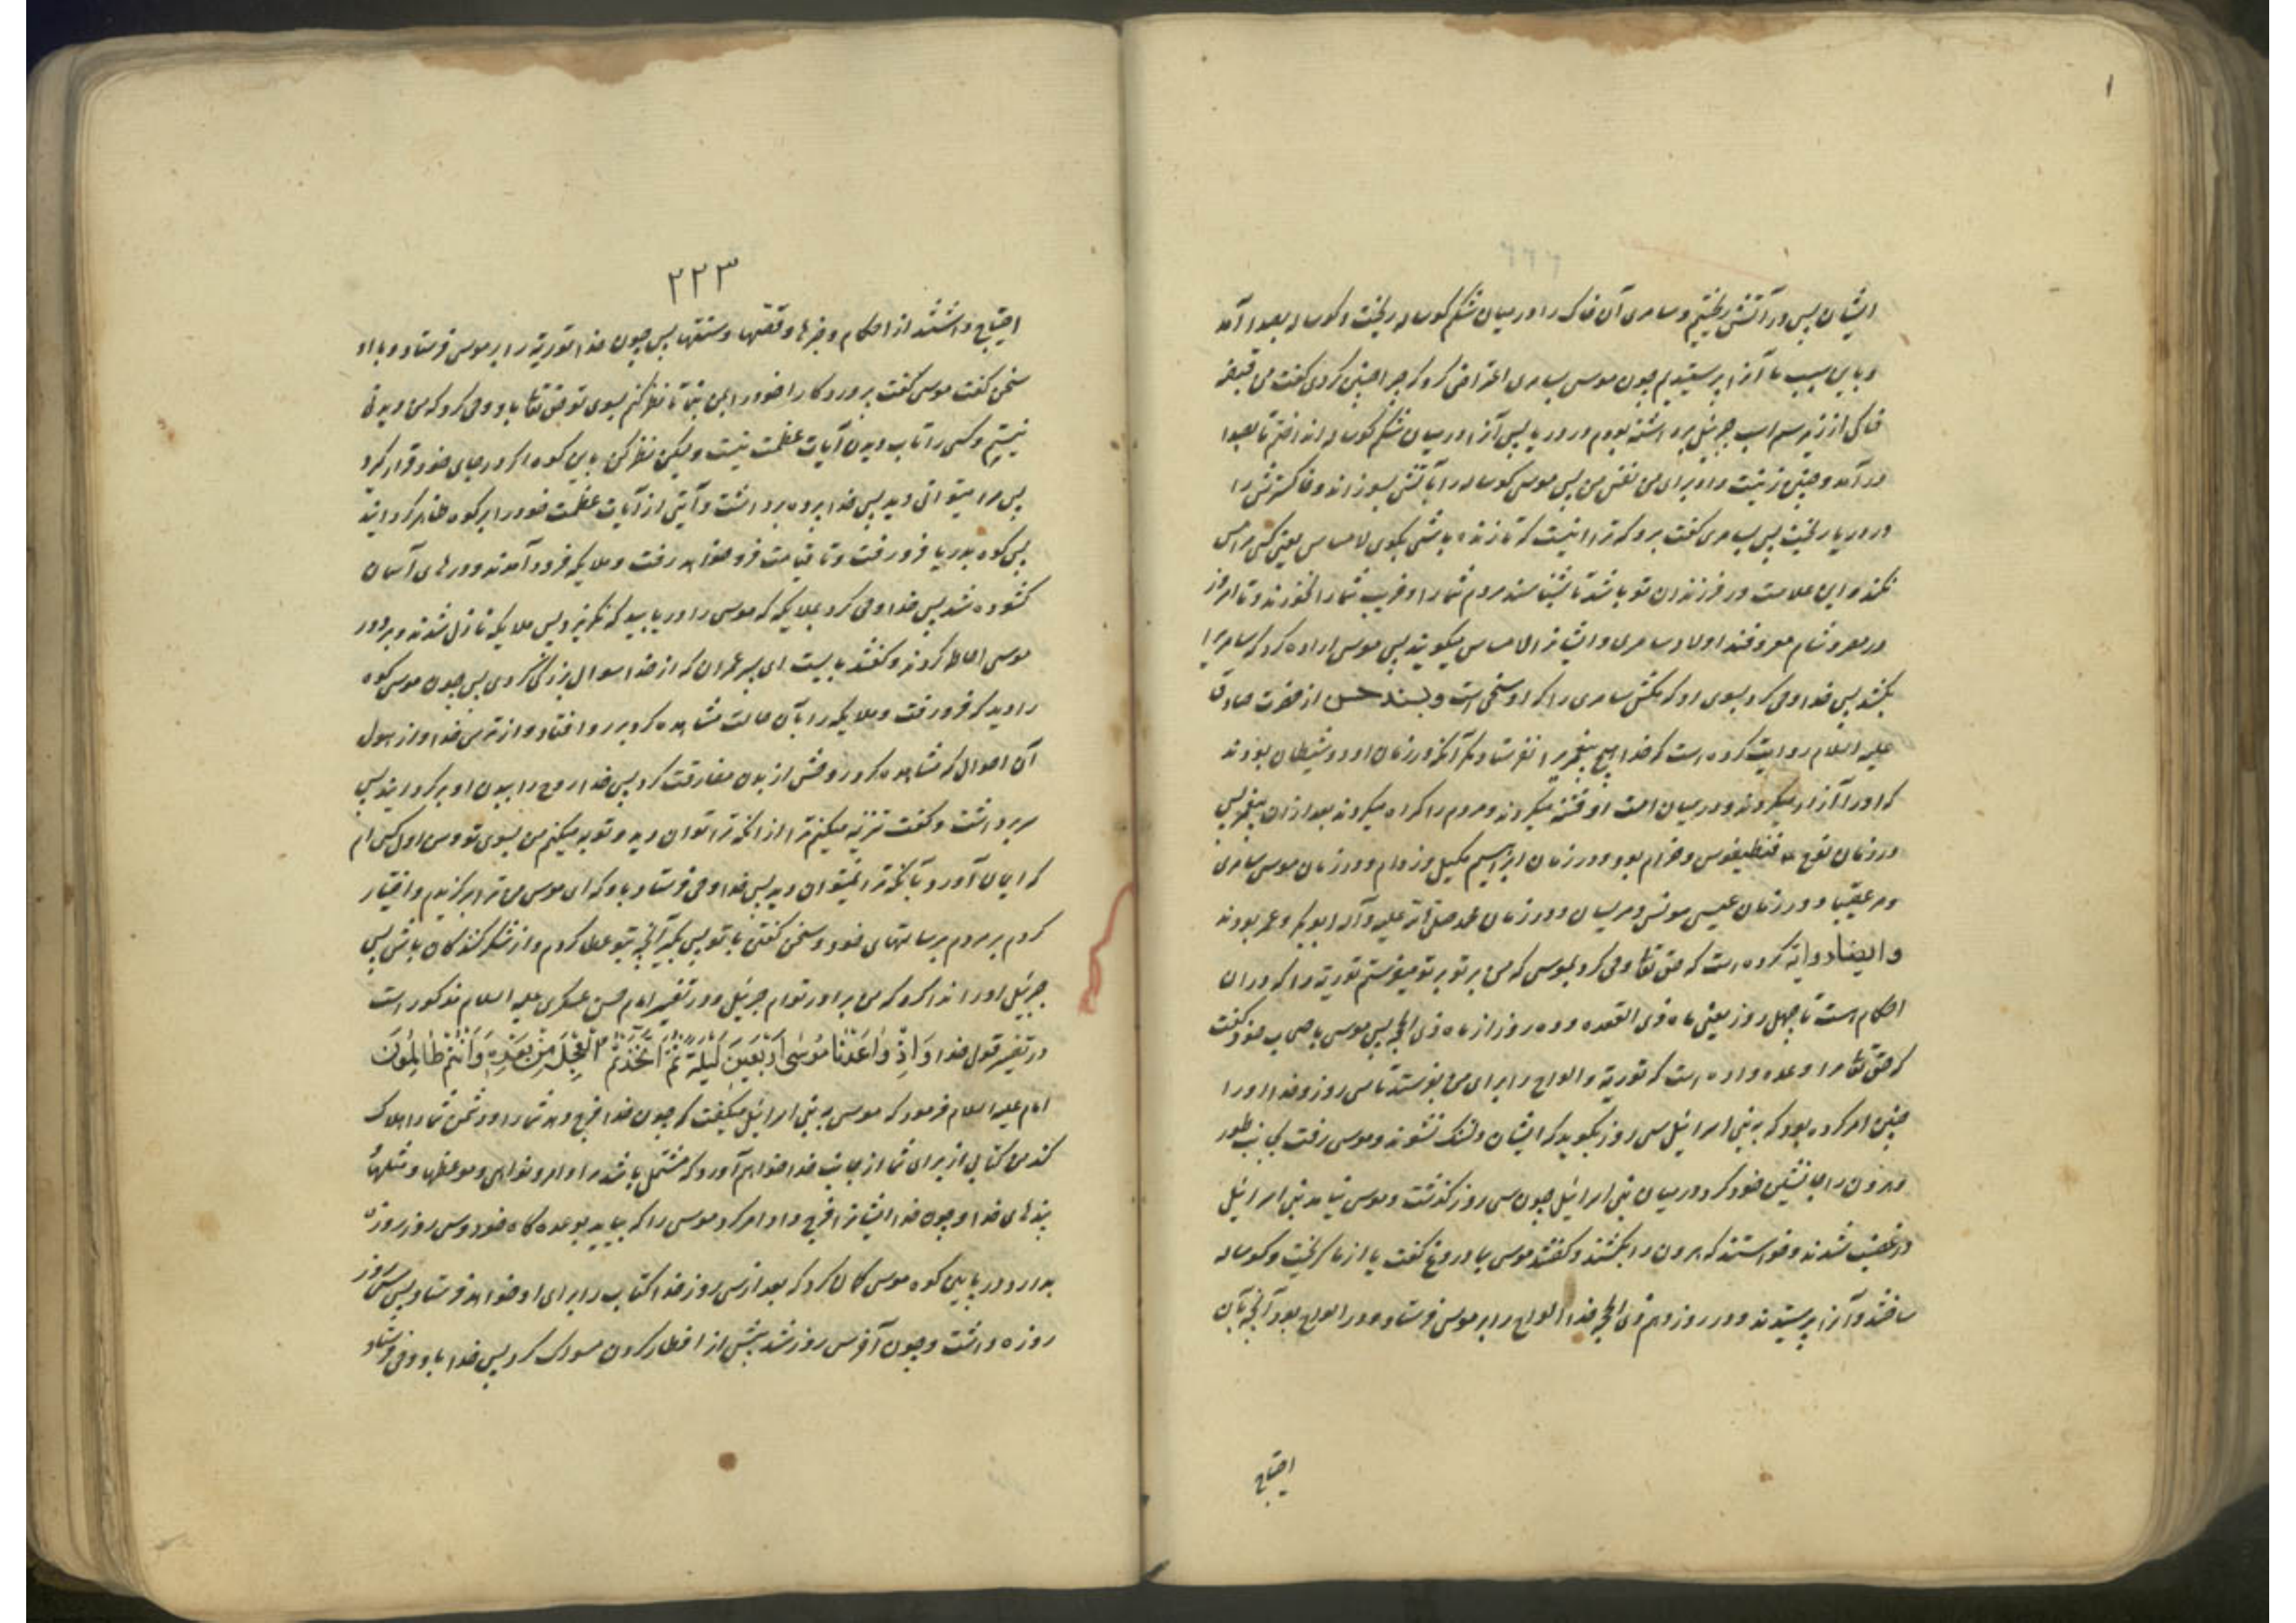 ایشان پس در آتش ریختیم و سامری آن خاک را در میان شکم کوساله ریخت و کوساله بصدا آمد
و باین سبب ما آنرا پرستیدیم چون موسی بسامری اعتراض کرد که چرا چنین کردی گفت من قبضه
خاکی از زیر سم اسب جبرئیل برداشته بودم در دریا پس آنرا در میان شکم کوساله انداختم تا بصدا
درآمد و چنین زینت داد برای من نفس من پس موسی کوساله را بآتش بسوزاند و خاکسترش را
در دریا ریخت پس بسامری گفت برو که ترا اینست که تا زنده باشی بکوی لامساس یعنی کسی مرا مس
نکند و این علامت در فرزندان تو باشد تا بشناسند مردم شما را و فریب شما را نخورند و تا امروز
در مصر و شام معروفند اولاد سامری و ایشانرا لامساس میکویند پس موسی اراده کرد که سامریرا
بکشد پس خدا وحی کرد بسوی او که مکش سامری را که او سخی است و بسند حسن از حضرت صادق
علیه السلام روایت کرده است که خدا هیچ پیغمبریرا نفرستاد مکر آنکه در زمان او دو شیطان بودند
که او را آزار میکردند و در میان امت او فتنه میکردند و مردم را کمراه میکردند بعد از آن پیغمبر پس
در زمان نوح ع فنطیفوس و خرام بود و در زمان ابراهیم مکیل و زدام و در زمان موسی سامری
و مرعقیبا و در زمان عیسی مونس و مریسان و در زمان محمد صلی الله علیه وآله ابوبکر و عمر بودند
و ایضا روایة کرده است که حق تعا وحی کرد بموسی که من بر تو میفرستم توریة را که در آن
احکام است تا چهل روز یعنی ماه ذی القعده و ده روز از ماه ذی الحجه پس موسی باصحاب خود گفت
که حق تعا مرا وعده داده است که توریة و الواح را برای من بفرستد تا سی روز و خدا او را
چنین امر کرده بود که به بنی اسرائیل سی روز بکوید که ایشان دلتنک نشوند و موسی رفت بجانب طور
و هرون را جانشین خود کرد در میان بنی اسرائیل چون سی روز گذشت و موسی نیامد بنی اسرائیل
در غضب شدند و خواستند که هرون را بکشند و گفتند موسی بما دروغ گفت یا از ما گریخت و کوساله
ساختند و آنرا پرستیدند و در روز دهم ذی الحجه خدا الواح را بر موسی فرستاد و در الواح بود آنچه بآن
احتیاج
٢٢٣
احتیاج داشتند از احکام و خبرها و قصّها و سنتها پس چون خدا توریة را بر موسی فرستاد و با او
سخن گفت موسی گفت پروردکارا خود را بمن بنما تا نظر کنم بسوی تو حق تعا باو وحی کرد که من دیدنی
نیستم و کسی را تاب دیدن آیات عظمت نیست ولیکن نظر کن باین کوه اکر در جای خود قرار کرد
پس مرا میتوانی دید پس خدا پرده برداشت و آیتی از آیات عظمت خود را بر کوه ظاهر کردانید
پس کوه بدریا فرو رفت و تا قیامت فرو خواهد رفت و ملایکه فرود آمدند و درهای آسمان
کشوده شد پس خدا وحی کرد بملایکه که موسی را دریابید که نکریزد پس ملایکه نازل شدند و بر دور
موسی احاطه کردند و گفتند بایست ای پسر عمران که از خدا سوال بزرکی کردی پس چون موسی کوه
را دید که فرو رفت و ملایکه را بآن حالت مشاهده کرد بر رو افتاد و از ترس خدا و از هول
آن احوال که مشاهده کرد روحش از بدن مفارقت کرد پس خدا روح را ببدن او برکردانید پس
سر برداشت و گفت تنزیه میکنم ترا از آنکه ترا توان دید و توبه میکنم من بسوی تو و من اول کسی ام
که ایمان آورد بآنکه ترا نمیتوان دید پس خدا وحی فرستاد باو که ای موسی من ترا برکزیدم و اختیار
کردم بر مردم برسالتهای خود و سخن گفتن با تو پس بکیر آنچه بتو عطا کردم و از شکرکنندکان باش پس
جبرئیل او را ندا کرد که من برادر توام جبرئیل و در تفسیر امام حسن عسکری علیه السلام مذکور است
در تفسیر قول خدا وَاِذْ وٰاعَدْنٰا مُوسٰى اَرْبَعِينَ لَيْلَةً ثُمَّ اتَّخَذْتُمُ الْعِجْلَ مِنْ بَعْدِهِ وَاَنْتُمْ ظٰالِمُونَ
امام علیه السلام فرمود که موسی به بنی اسرائیل میگفت که چون خدا فرج دهد شما را و دشمن شما را هلاک
کند من کتابی از برای شما از جانب خدا خواهم آورد که مشتمل باشد بر اوامر و نواهی و موعظها و مثلهای
بندهای خدا و چون خدا ایشانرا فرج داد امر کرد موسی را که بیاید بوعده کاه خود و سی روز روزه
بدارد در پایین کوه موسی کمان کرد که بعد از سی روز خدا کتاب را برای او خواهد فرستاد پس سی روز
روزه داشت و چون آخر سی روز شد پیش از افطار کردن مسواک کرد پس خدا باو وحی فرستاد